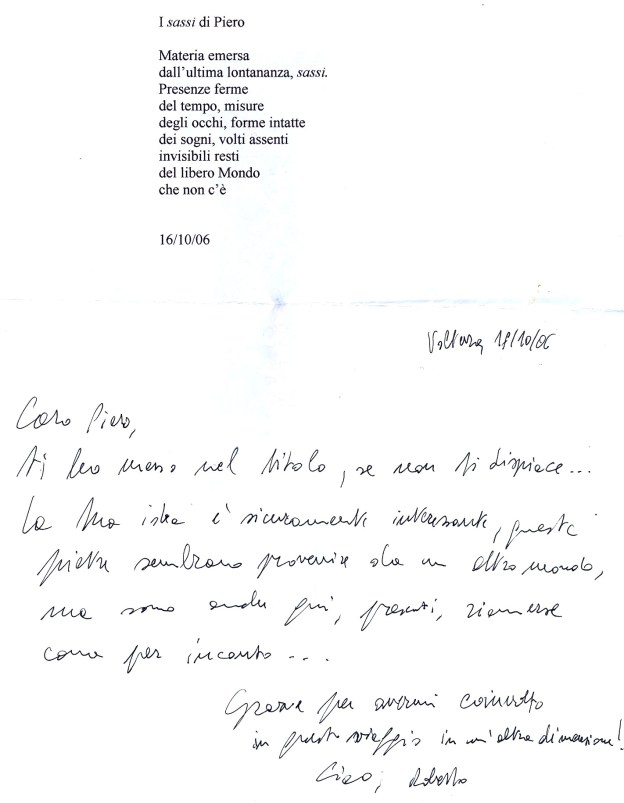 I sassi di Piero
Materia emersa
dall'ultima lontananza, sassi.
Presenze ferme
del tempo, misure
degli occhi, forme intatte
dei sogni, volti assenti
invisibili resti
del libero Mondo
che non c'è
16/10/06
/10/06
Caro Piero,
ti ho messo nel titolo, se non ti dispiace...
La tua idea è sicuramente interessante, queste
pietre sembrano provenire da un altro mondo,
ma sono anche qui, presenti, riemerse
come per incanto ...
Grazie per avermi coinvolto
in questo viaggio in un'altra dimensione!
Ciao, Roberto